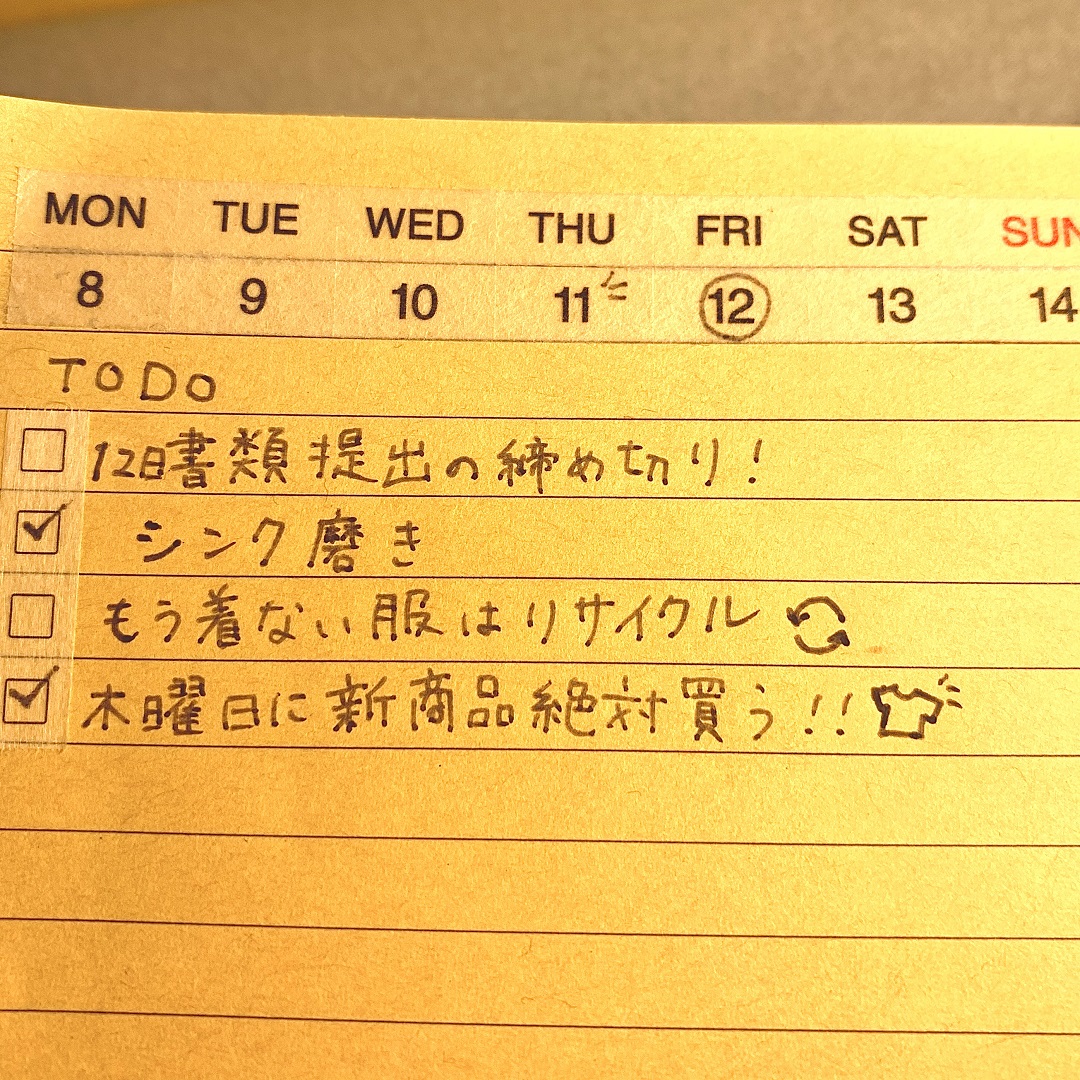 MON TUE WED THU FRI SAT SUN
8 9 10 11 12 13 14
TODO
12日書類提出の締め切り!
シンク磨き
もう着ない服はリサイクル
木曜日に新商品絶対買う!!